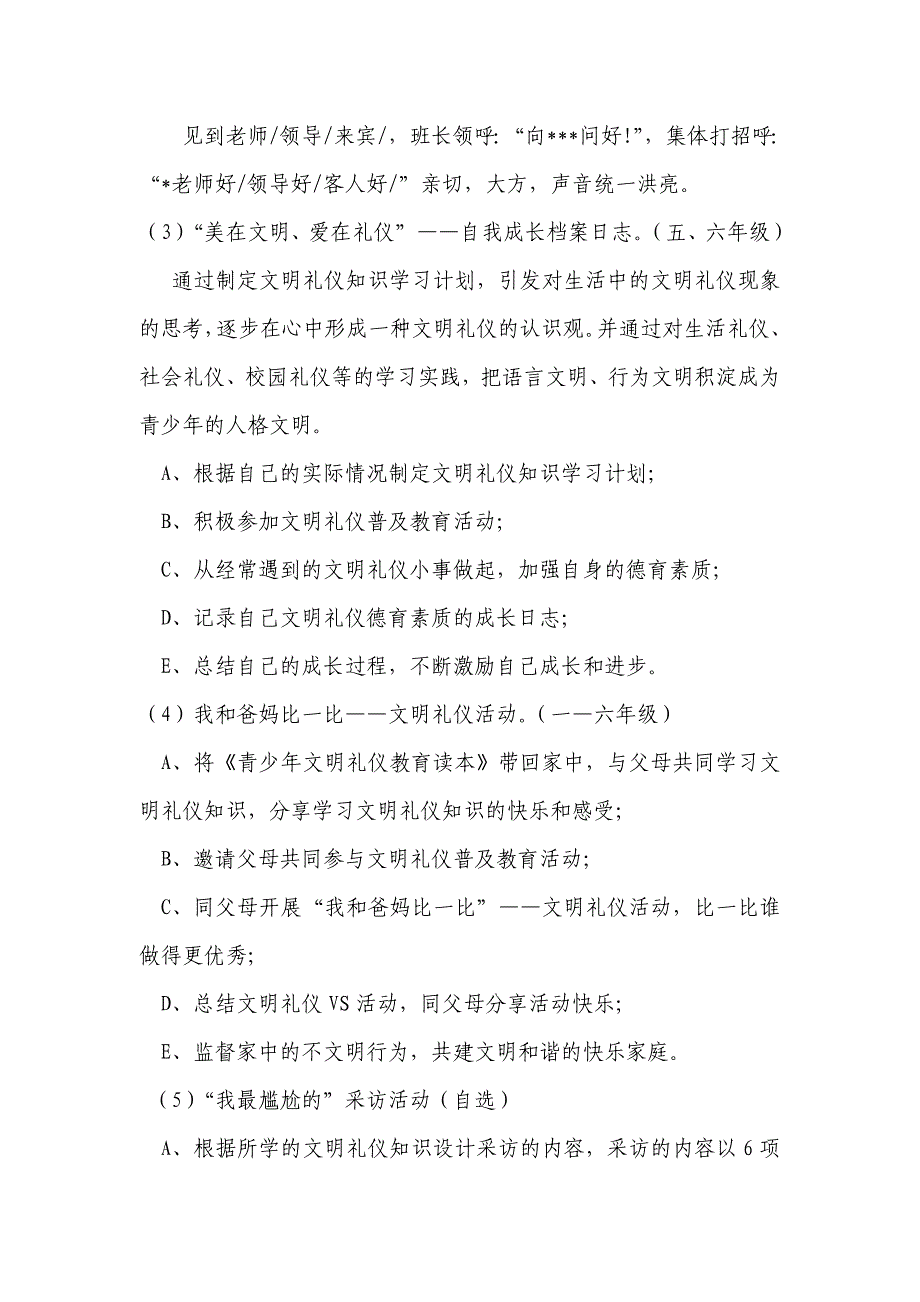 见到老师/领导/来宾/，班长领呼：“向***问好！”，集体打招呼：
“*老师好/领导好/客人好/”亲切，大方，声音统一洪亮。
（3）“美在文明、爱在礼仪”——自我成长档案日志。（五、六年级）
通过制定文明礼仪知识学习计划，引发对生活中的文明礼仪现象
的思考，逐步在心中形成一种文明礼仪的认识观。并通过对生活礼仪、
社会礼仪、校园礼仪等的学习实践，把语言文明、行为文明积淀成为
青少年的人格文明。
A、根据自己的实际情况制定文明礼仪知识学习计划；
B、积极参加文明礼仪普及教育活动；
C、从经常遇到的文明礼仪小事做起，加强自身的德育素质；
D、记录自己文明礼仪德育素质的成长日志；
E、总结自己的成长过程，不断激励自己成长和进步。
（4）我和爸妈比一比——文明礼仪活动。（一——六年级）
A、将《青少年文明礼仪教育读本》带回家中，与父母共同学习文
明礼仪知识，分享学习文明礼仪知识的快乐和感受；
B、邀请父母共同参与文明礼仪普及教育活动；
C、同父母开展“我和爸妈比一比”——文明礼仪活动，比一比谁
做得更优秀；
D、总结文明礼仪 VS 活动，同父母分享活动快乐；
E、监督家中的不文明行为，共建文明和谐的快乐家庭。
（5）“我最尴尬的”采访活动（自选）
A、根据所学的文明礼仪知识设计采访的内容，采访的内容以 6 项